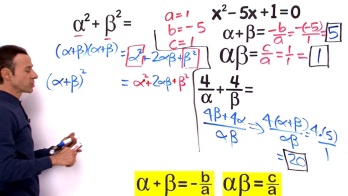 α²+β²=
(α+β)(α+β)=α²+2αβ+β²
(α+β)²=α²+2αβ+β²
a=1
b=-5
c=1
x²-5x+1=0
α+β=-b/a=-(-5)/1=5
αβ=c/a=1/1=1
4/α+4/β=
4β+4α/αβ→4(α+β)/αβ=4(5)/1
=20
α+β=-b/a
αβ=c/a